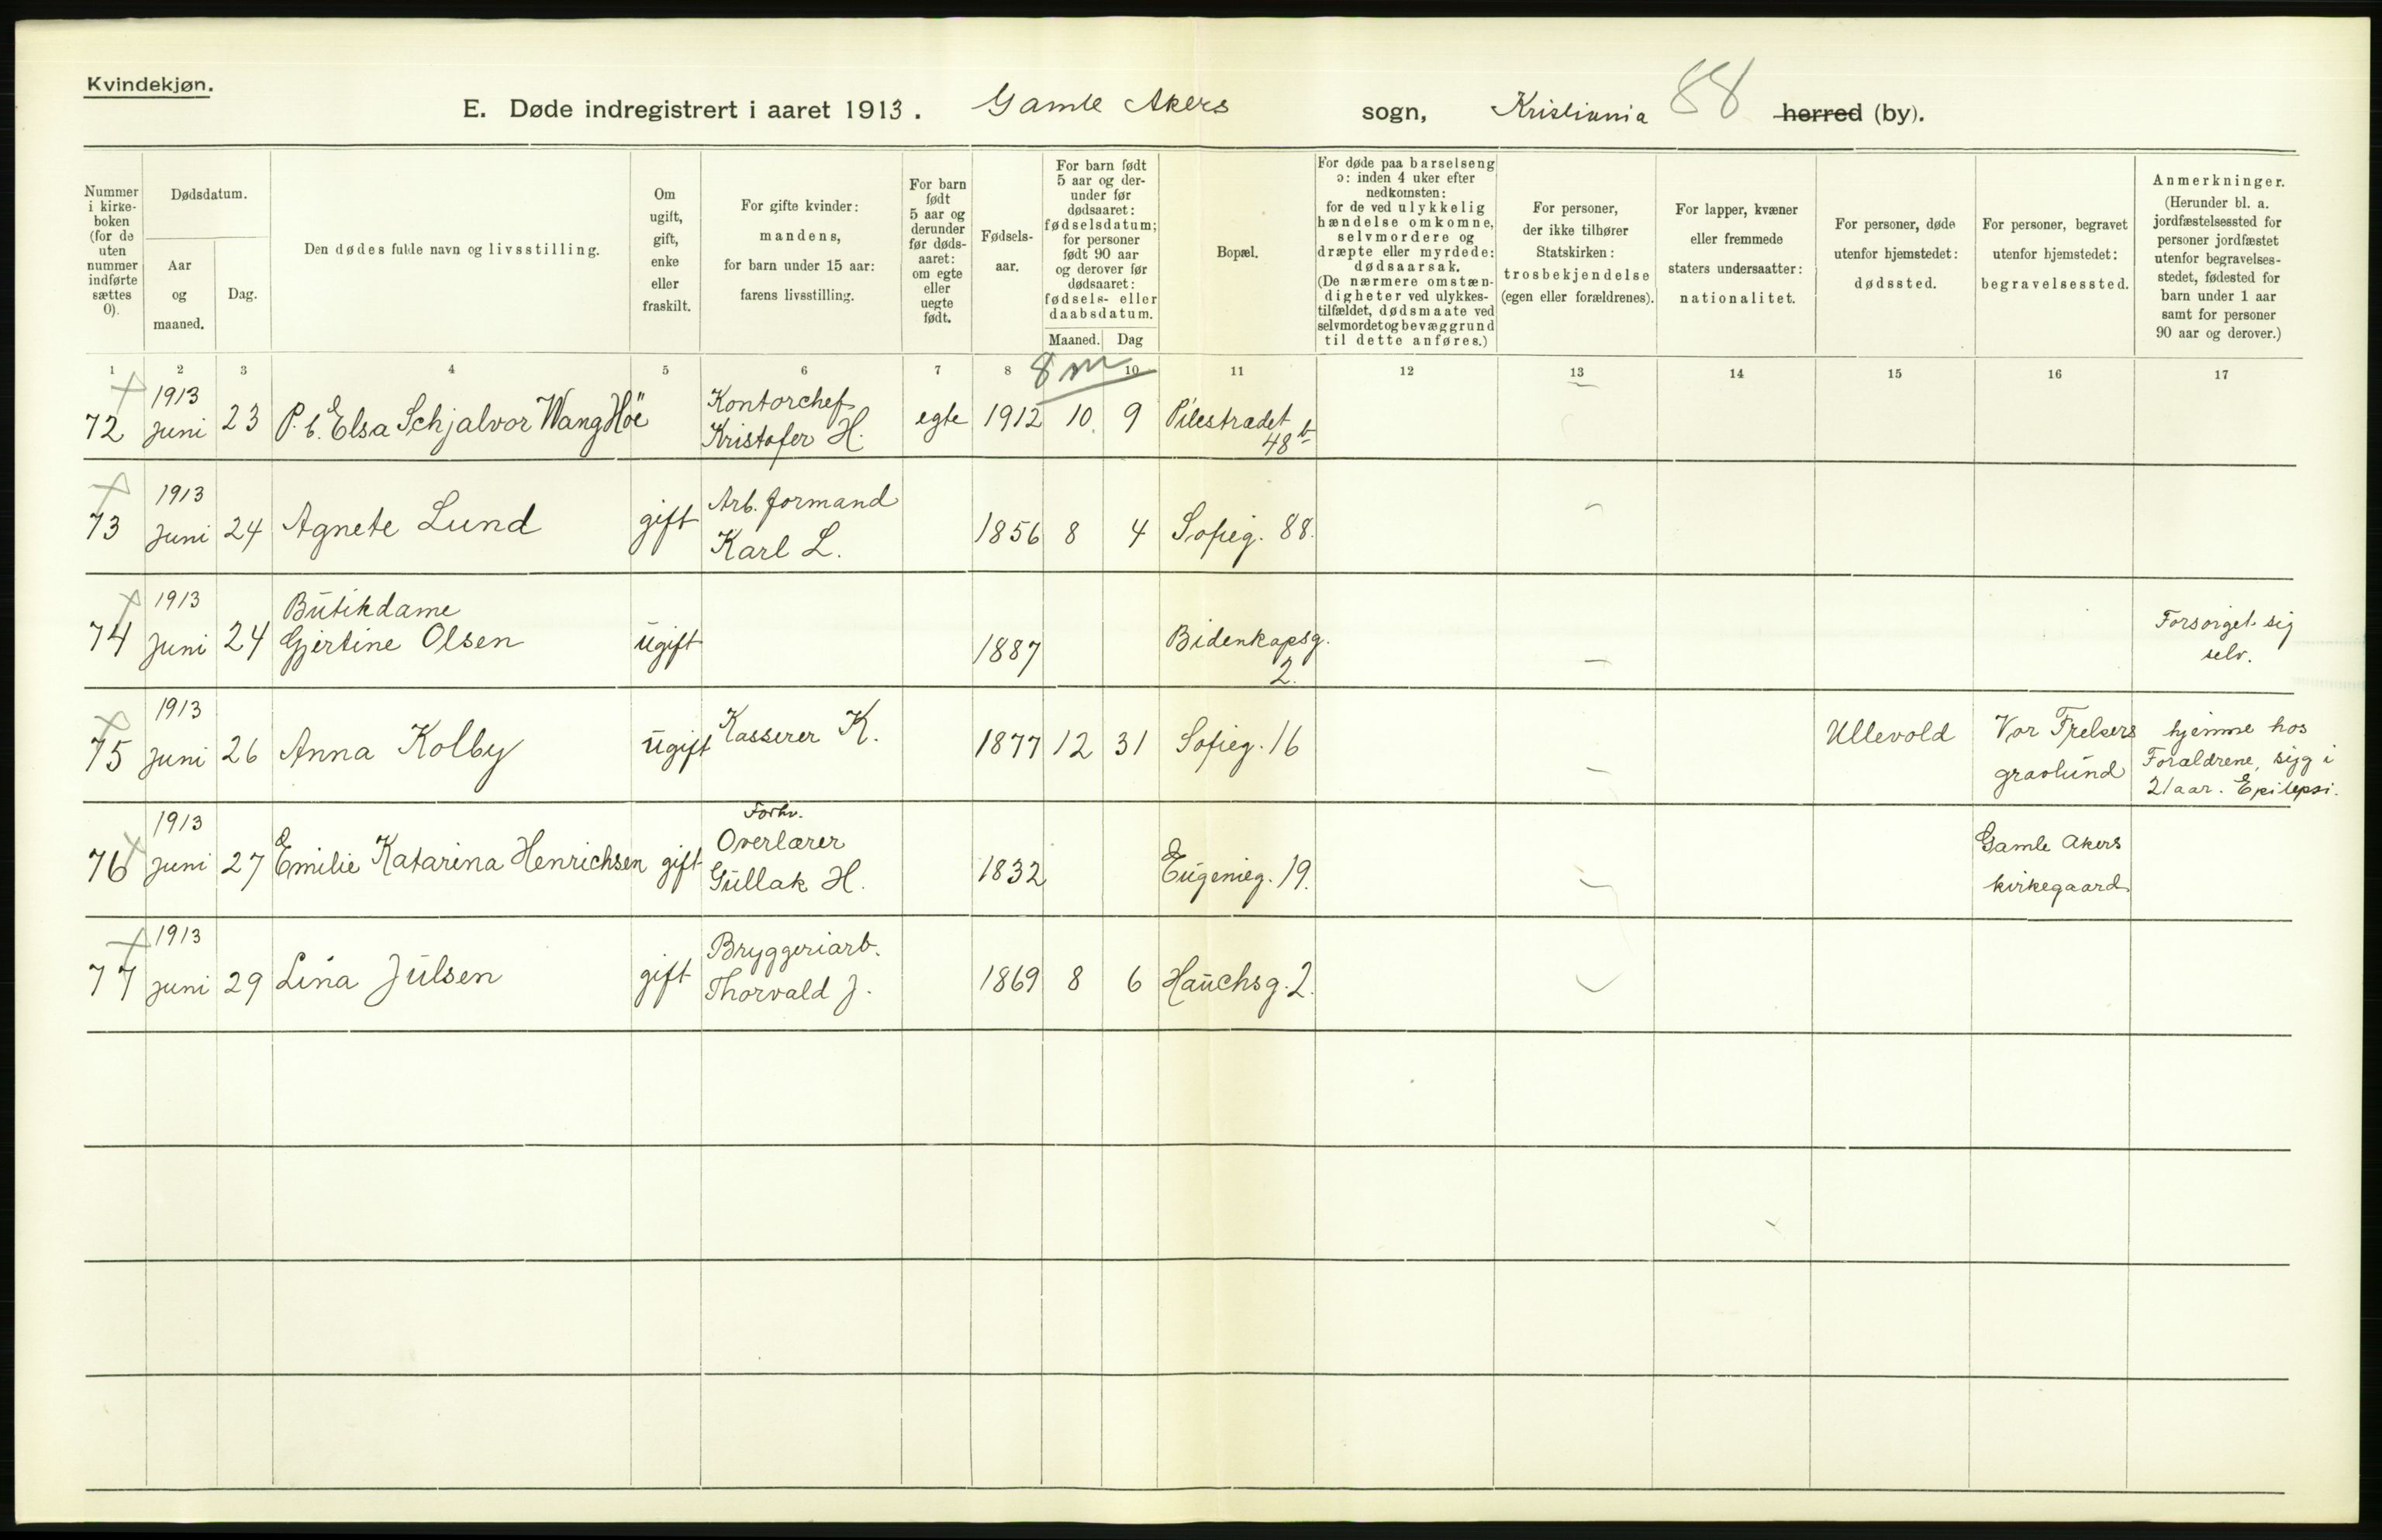 Kvindekjøn.
E. Døde indregistrert i aaret 1913. Gamle Akers sogn, Kristiania 88 herred (by).
Nummer i kirke-boken (for de uten nummer indførte sættes 0).
Dødsdatum.
Aar og maaned.
Dag.
Den dødes fulde navn og livsstilling.
Om ugift, gift, enke eller fraskilt.
For gifte kvinder: mandens, for barn under 15 aar: farens livsstilling.
For barn født 5 aar og derunder før døds-aaret: om egte eller uegte født.
Fødsels-aar.
For barn født 5 aar og der-under før dødsaaret: fødselsdatum; for personer født 90 aar og derover før dødsaaret: fødsels- eller daabsdatum.
Maaned. Dag
Bopæl.
For døde paa barselseng ɔ: inden 4 uker efter nedkomsten: for de ved ulykkelig hændelse omkomne, selvmordere og dræpte eller myrdede: dødsaarsak. (De nærmere omstæn-digheter ved ulykkes-tilfældet, dødsmaate ved selvmordet og bevæggrund til dette anføres.)
For personer, der ikke tilhører Statskirken: trosbekjendelse (egen eller forældrenes).
For lapper, kvæner eller fremmede staters undersaatter: nationalitet.
For personer, døde utenfor hjemstedet: dødssted.
For personer, begravet utenfor hjemstedet: begravelsessted.
Anmerkninger. (Herunder bl. a. jordfæstelsessted for personer jordfæstet utenfor begravelses-stedet, fødested for barn under 1 aar samt for personer 90 aar og derover.)
1 2 3 4 5 6 7 8 10 11 12 13 14 15 16 17
8 m
72 1913 Juni 23 P.b. Elsa Schjalvor Wang Höe Kontorchef Kristofer H. egte 1912 10. 9 Pilestrædet 48 b
73 1913 Juni 24 Agnete Lund gift Arb. formand Karl L. 1856 8 4 Sofieg. 88.
74 1913 Juni 24 Butikdame Gjertine Olsen ugift 1887 Bidenkapsg. 2. Forsørget sig selv.
75 1913 Juni 26 Anna Kolby ugift Kasserer K. 1877 12 31 Sofieg. 16 Ullevold Vor Frelsers gravlund hjemme hos Forældrene, syg i 21 aar. Epilepsi.
76 1913 Juni 27 Emilie Katarina Henrichsen gift Forhv. Overlærer Gullak H. 1832 Eugenieg. 19. Gamle Akers kirkegaard
77 1913 Juni 29 Lina Julsen gift Bryggeriarb. Thorvald J. 1869 8 6 Hauchsg. 2.